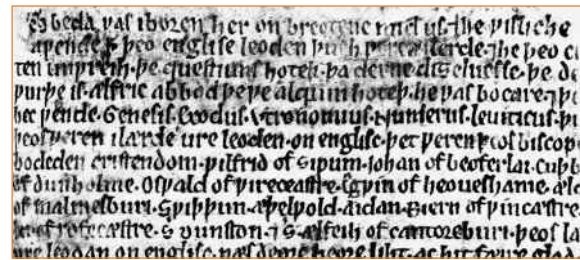 beda ƿas iboren her on breotene mid us. ⁊he ƿisliche
aƿende þ þeo englise leoden þurh ƿeren ilerde. ⁊he þeo c
ten unƿreih. þe questiuns hoteþ. þa derne diȝelnesse. þe de
ƿurþe is. ælfric abbod þe ƿe alquin hoteþ. he ƿas bocare. ⁊ þ
bec ƿende. Genesis. Exodus. Vtronomius. Numerus. leuiticus. þu
þeos ƿeren ilærde ure leoden on englisc. þet ƿeren þeos biscop
bodeden cristendom. ƿilfrid of ripum. Johan of beoferlai. Cuþb
of dunholme. Osƿald of ƿireceastre. Egƿin of heoueshame. æl
of malmesburi. Sƿiþþun. aþelƿold. aidan. Biern of ƿincæstre.
of rofecæstre. S dunston. ⁊ S ælfeih of cantoreburi. þeos læ
ure leodan on englisc. næs deorc heore liht. ac hit fæire glod.